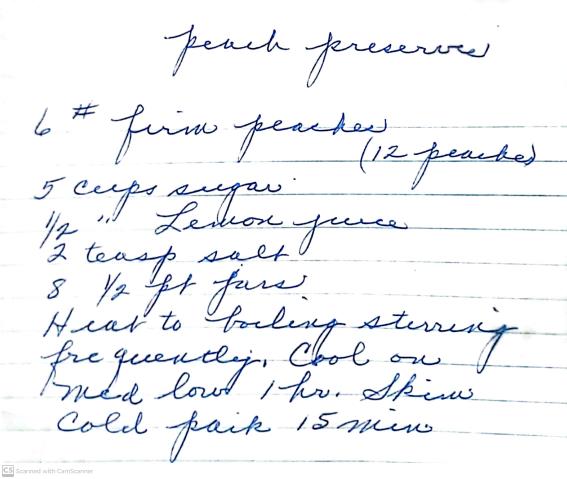 peach preserves
6 # firm peaches
(12 peaches)
5 cups sugar
1/2 " Lemon juice
2 teasp salt
8 1/2 pt jars
Heat to boiling stirring
frequently. Cool on
Med low 1 hr. Skim
Cold pack 15 min
CS Scanned with CamScanner